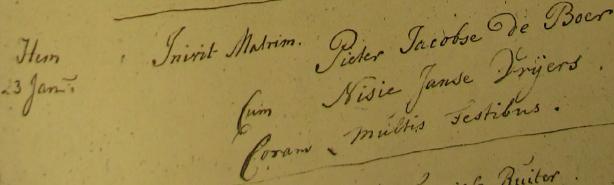 Item Inivit Matrim. Pieter Jacobse De Boer
23 Jan:
Cum Nisie Janse Drijers.
Coram multis testibus.
Ruiter.